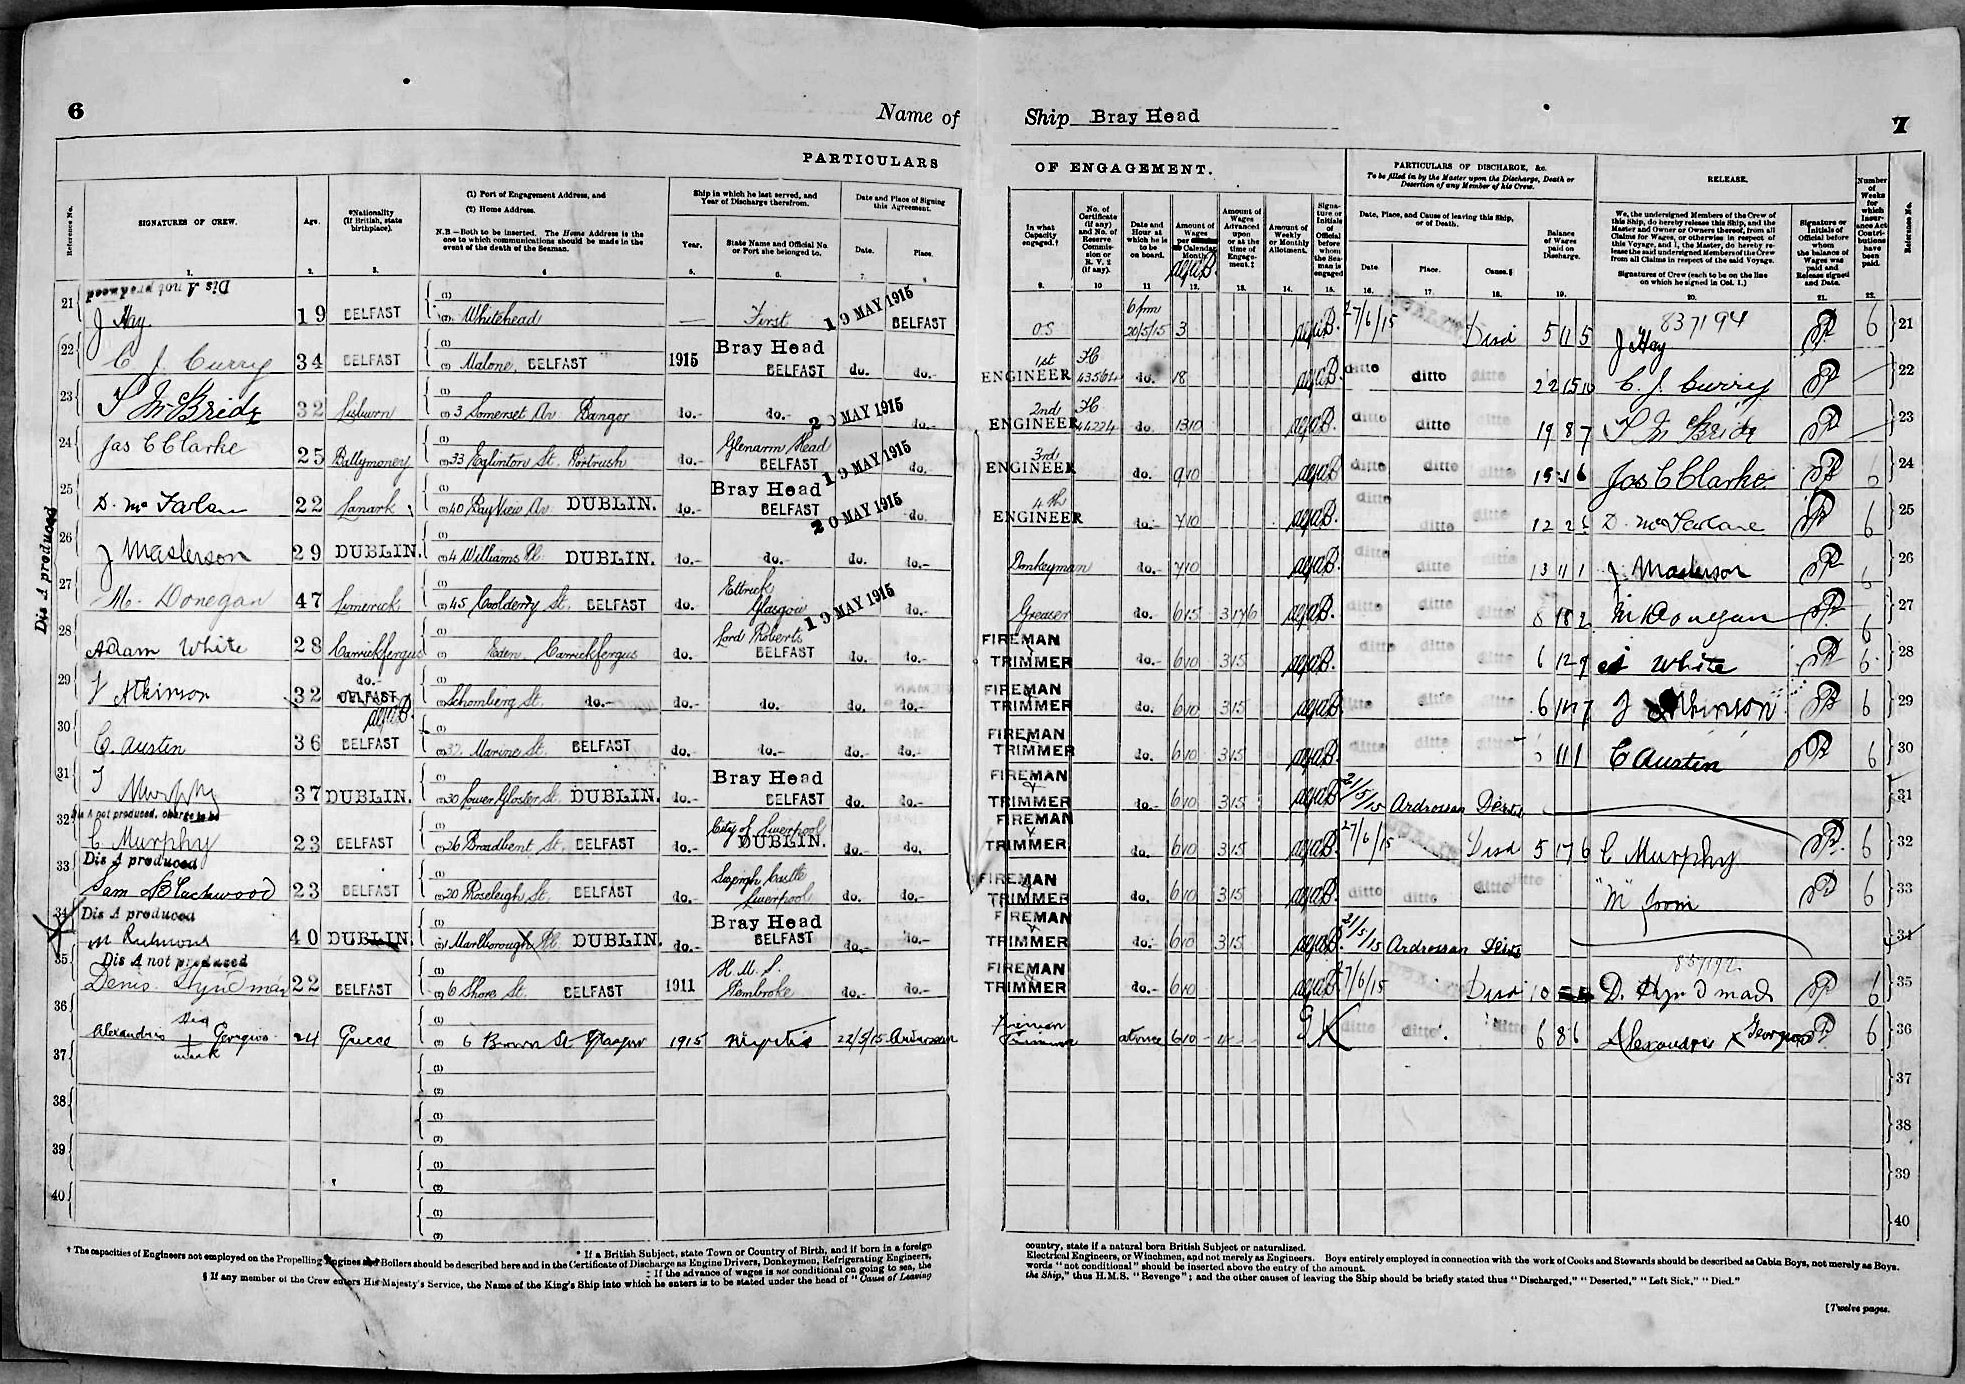 6
Name of
Ship Bray Head
7
PARTICULARS
OF ENGAGEMENT.
PARTICULARS OF DISCHARGE, &c.
To be filled in by the Master upon the Discharge, Death or Desertion of any Member of his Crew.
RELEASE.
Reference No.
SIGNATURES OF CREW.
Age.
*Nationality (If British, state birthplace).
(1) Port of Engagement Address, and
(2) Home Address.
N.B—Both to be inserted. The Home Address is the one to which communications should be made in the event of the death of the Seaman.
Ship in which he last served, and Year of Discharge therefrom.
Year.
State Name and Official No. or Port she belonged to.
Date and Place of Signing this Agreement.
Date.
Place.
In what Capacity engaged.†
No. of Certificate (if any) and No. of Reserve Commission or R.V.2 (if any).
Date and Hour at which he is to be on board.
Amount of Wages per Calendar Month
Amount of Wages Advanced upon or at the time of Engagement.‡
Amount of Weekly or Monthly Allotment.
Signature or Initials of Official before whom the Seaman is engaged
Date, Place, and Cause of leaving this Ship, or of Death.
Date.
Place.
Cause.§
Balance of Wages paid on Discharge.
We, the undersigned Members of the Crew of this Ship, do hereby release this Ship, and the Master and Owner or Owners thereof, from all Claims for Wages, or otherwise in respect of this Voyage, and I, the Master, do hereby release the said undersigned Members of the Crew from all Claims in respect of the said Voyage.
Signatures of Crew (each to be on the line on which he signed in Col. 1.)
Signature or Initials of Official before whom the balance of Wages was paid and Release signed and Date.
Number of Weeks for which Insurance Act Contributions have been paid.
Reference No.
1. 2. 3. 4 5. 6. 7. 8 9. 10 11 12. 13. 14. 15. 16. 17. 18. 19. 20. 21. 22.
Dis A not produced
21 J Hay 19 BELFAST (1) (2) Whitehead — First 19 MAY 1915 BELFAST O.S 6 pm 20/5/15 3 27/6/15 Disd 5 11 5 837194 J Hay 6 21
22 C. J. Curry 34 BELFAST (1) (2) Malone, BELFAST 1915 Bray Head BELFAST do. do.- 1st ENGINEER do. 18 ditto ditto ditto 22 15 10 C. J. Curry 22
23 McBride 32 Lisburn (1) (2) 3 Somerset Av Bangor do.- do.- 20 MAY 1915 do.- 2nd ENGINEER 44224 do. 13 10 ditto ditto ditto 19 8 7 McBride 23
24 Jas C Clarke 25 Ballymoney (1) (2) 33 Eglinton St. Portrush do.- Glenarm Head BELFAST 19 MAY 1915 do. 3rd ENGINEER do. 9 10 ditto ditto ditto Jas C Clarke 24
25 D. McFarlan 22 Lanark (1) (2) 40 BayView Av DUBLIN. do.- Bray Head BELFAST 20 MAY 1915 do. 4th ENGINEER do.- 7 10 ditto ditto ditto D. McFarlane 6 25
26 J Masterson 29 DUBLIN. (1) (2) 4 Williams Pl DUBLIN. do.- do.- do. do.- Donkeyman do.- 7 10 ditto ditto ditto 13 11 1 J Masterson 6 26
27 M. Donegan 47 Limerick (1) (2) 45 Coolderry St. BELFAST do. Ettrick Glasgow 19 MAY 1915 do.- Greaser do. 6 15 3 17 6 ditto ditto ditto 8 18 2 M Donegan 6 27
Dis A produced
28 Adam White 28 Carrickfergus (1) (2) Eden, Carrickfergus do. Lord Roberts BELFAST do. do.- FIREMAN & TRIMMER do.- 6 10 3 15 ditto ditto ditto 6 12 9 White 6 28
29 Atkinson 32 do.- BELFAST (1) (2) Schomberg St. do.- do.- do. do. do.- FIREMAN & TRIMMER do. 6 10 3 15 ditto ditto ditto Atkinson 6 29
30 C. Austin 36 BELFAST (1) (2) Marine St. BELFAST do. do.- do. do.- FIREMAN & TRIMMER do. 6 10 3 15 ditto ditto ditto 11 1 C Austin 6 30
31 Murphy 37 DUBLIN. (1) (2) 30 Lower Gloster St. DUBLIN. do.- Bray Head BELFAST do. do.- FIREMAN & TRIMMER do. 6 10 3 15 21/5/15 Ardrossan 31
Dis A not produced, charge to be
32 C Murphy 23 BELFAST (1) (2) 26 Broadbent St. BELFAST do.- City of Liverpool DUBLIN. do. do. FIREMAN & TRIMMER do. 6 10 3 15 27/6/15 Disd 5 17 6 C Murphy 6 32
Dis A produced
33 Sam Blackwood 23 BELFAST (1) (2) 20 Roseleigh St. BELFAST do. Castle Liverpool do. do.- FIREMAN & TRIMMER do. 6 10 3 15 ditto ditto ditto "M" form 6 33
Dis A produced
34 M Redmond 40 DUBLIN. (1) (2) 1 Marlborough Pl. DUBLIN. do.- Bray Head BELFAST do. do.- FIREMAN & TRIMMER do.- 6 10 3 15 21/5/15 Ardrossan 34
Dis A not produced
35 Denis Hyndman 22 BELFAST (1) (2) 6 Shore St. BELFAST 1911 H.M.S. Pembroke do.- do.- FIREMAN & TRIMMER do.- 6 10 27/6/15 Disd 10 D. Hyndman 6 35
36 Alexandris his + mark Georgios 24 Greece (1) (2) 6 Brown St Glasgow 1915 Myrtis 22/5/15 Ardrossan Fireman Trimmer at once 6 10 ditto ditto ditto 6 8 6 Alexandris x Georgios 6 36
37 (1) (2) 37
38 (1) (2) 38
39 (1) (2) 39
40 (1) (2) 40
† The capacities of Engineers not employed on the Propelling Engines and Boilers should be described here and in the Certificate of Discharge as Engine Drivers, Donkeymen, Refrigerating Engineers,
* If a British Subject, state Town or Country of Birth, and if born in a foreign
‡ If the advance of wages is not conditional on going to sea, the
§ If any member of the Crew enters His Majesty's Service, the Name of the King's Ship into which he enters is to be stated under the head of "Cause of Leaving
country, state if a natural born British Subject or naturalized.
Electrical Engineers, or Winchmen, and not merely as Engineers. Boys entirely employed in connection with the work of Cooks and Stewards should be described as Cabin Boys, not merely as Boys.
words "not conditional" should be inserted above the entry of the amount.
the Ship," thus H.M.S. "Revenge"; and the other causes of leaving the Ship should be briefly stated thus "Discharged," "Deserted," "Left Sick," "Died."
[Twelve pages.